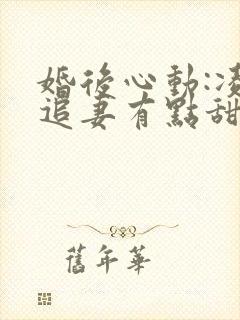 婚後心動:凌
追妻有點甜
舊年華